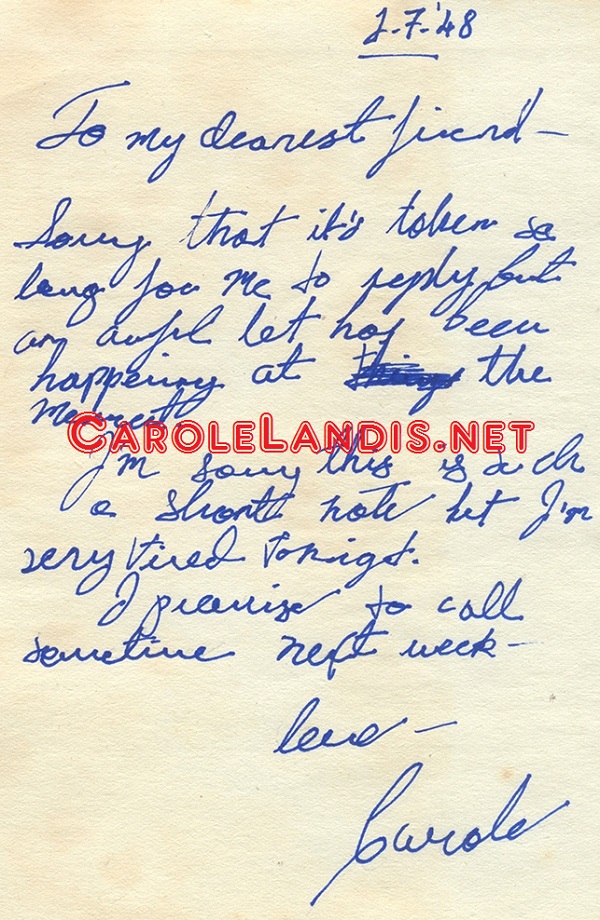 2-7-'48
To my dearest friend -
Sorry that it's taken so
long for me to reply but
an awful lot has been
happening at the
moment.
CAROLELANDIS.NET
I'm sorry this is such
a short note but I'm
very tired tonight.
I promise to call
sometime next week -
love -
Carole